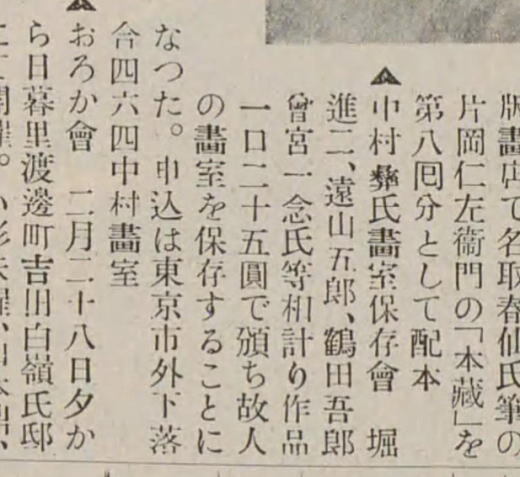 版畫店で名取春仙氏筆の
片岡仁左衞門の「本藏」を
第八囘分として配本
中村彝氏畫室保存會 堀
進二、遠山五郎、鶴田吾郎
曾宮一念氏等相計り作品
一口二十五圓で頒ち故人
の畫室を保存することに
なつた。申込は東京市外下落
合四六四中村畫室
おろか會 二月二十八日夕か
ら日暮里渡邊町吉田白嶺氏邸